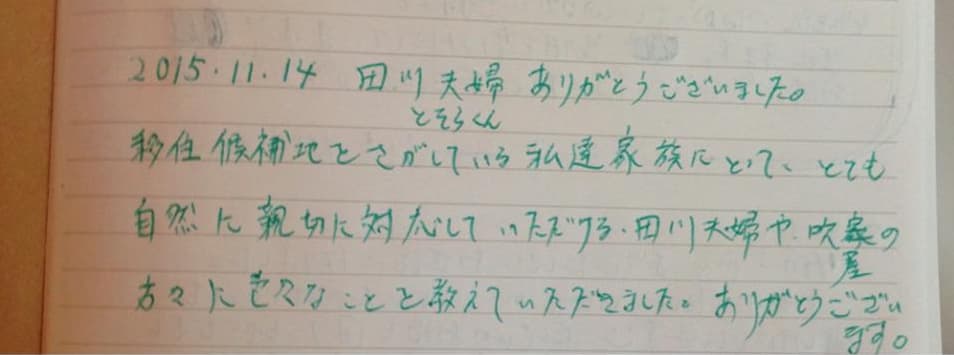 2015.11.14 田川夫婦 ありがとうございました。
とそらくん
移住候補地をさがしている私達家族にとって、とても
自然に親切に対応していただける、田川夫婦や吹屋の
方々に色々なことを教えていただきました。ありがとうござい
ます。